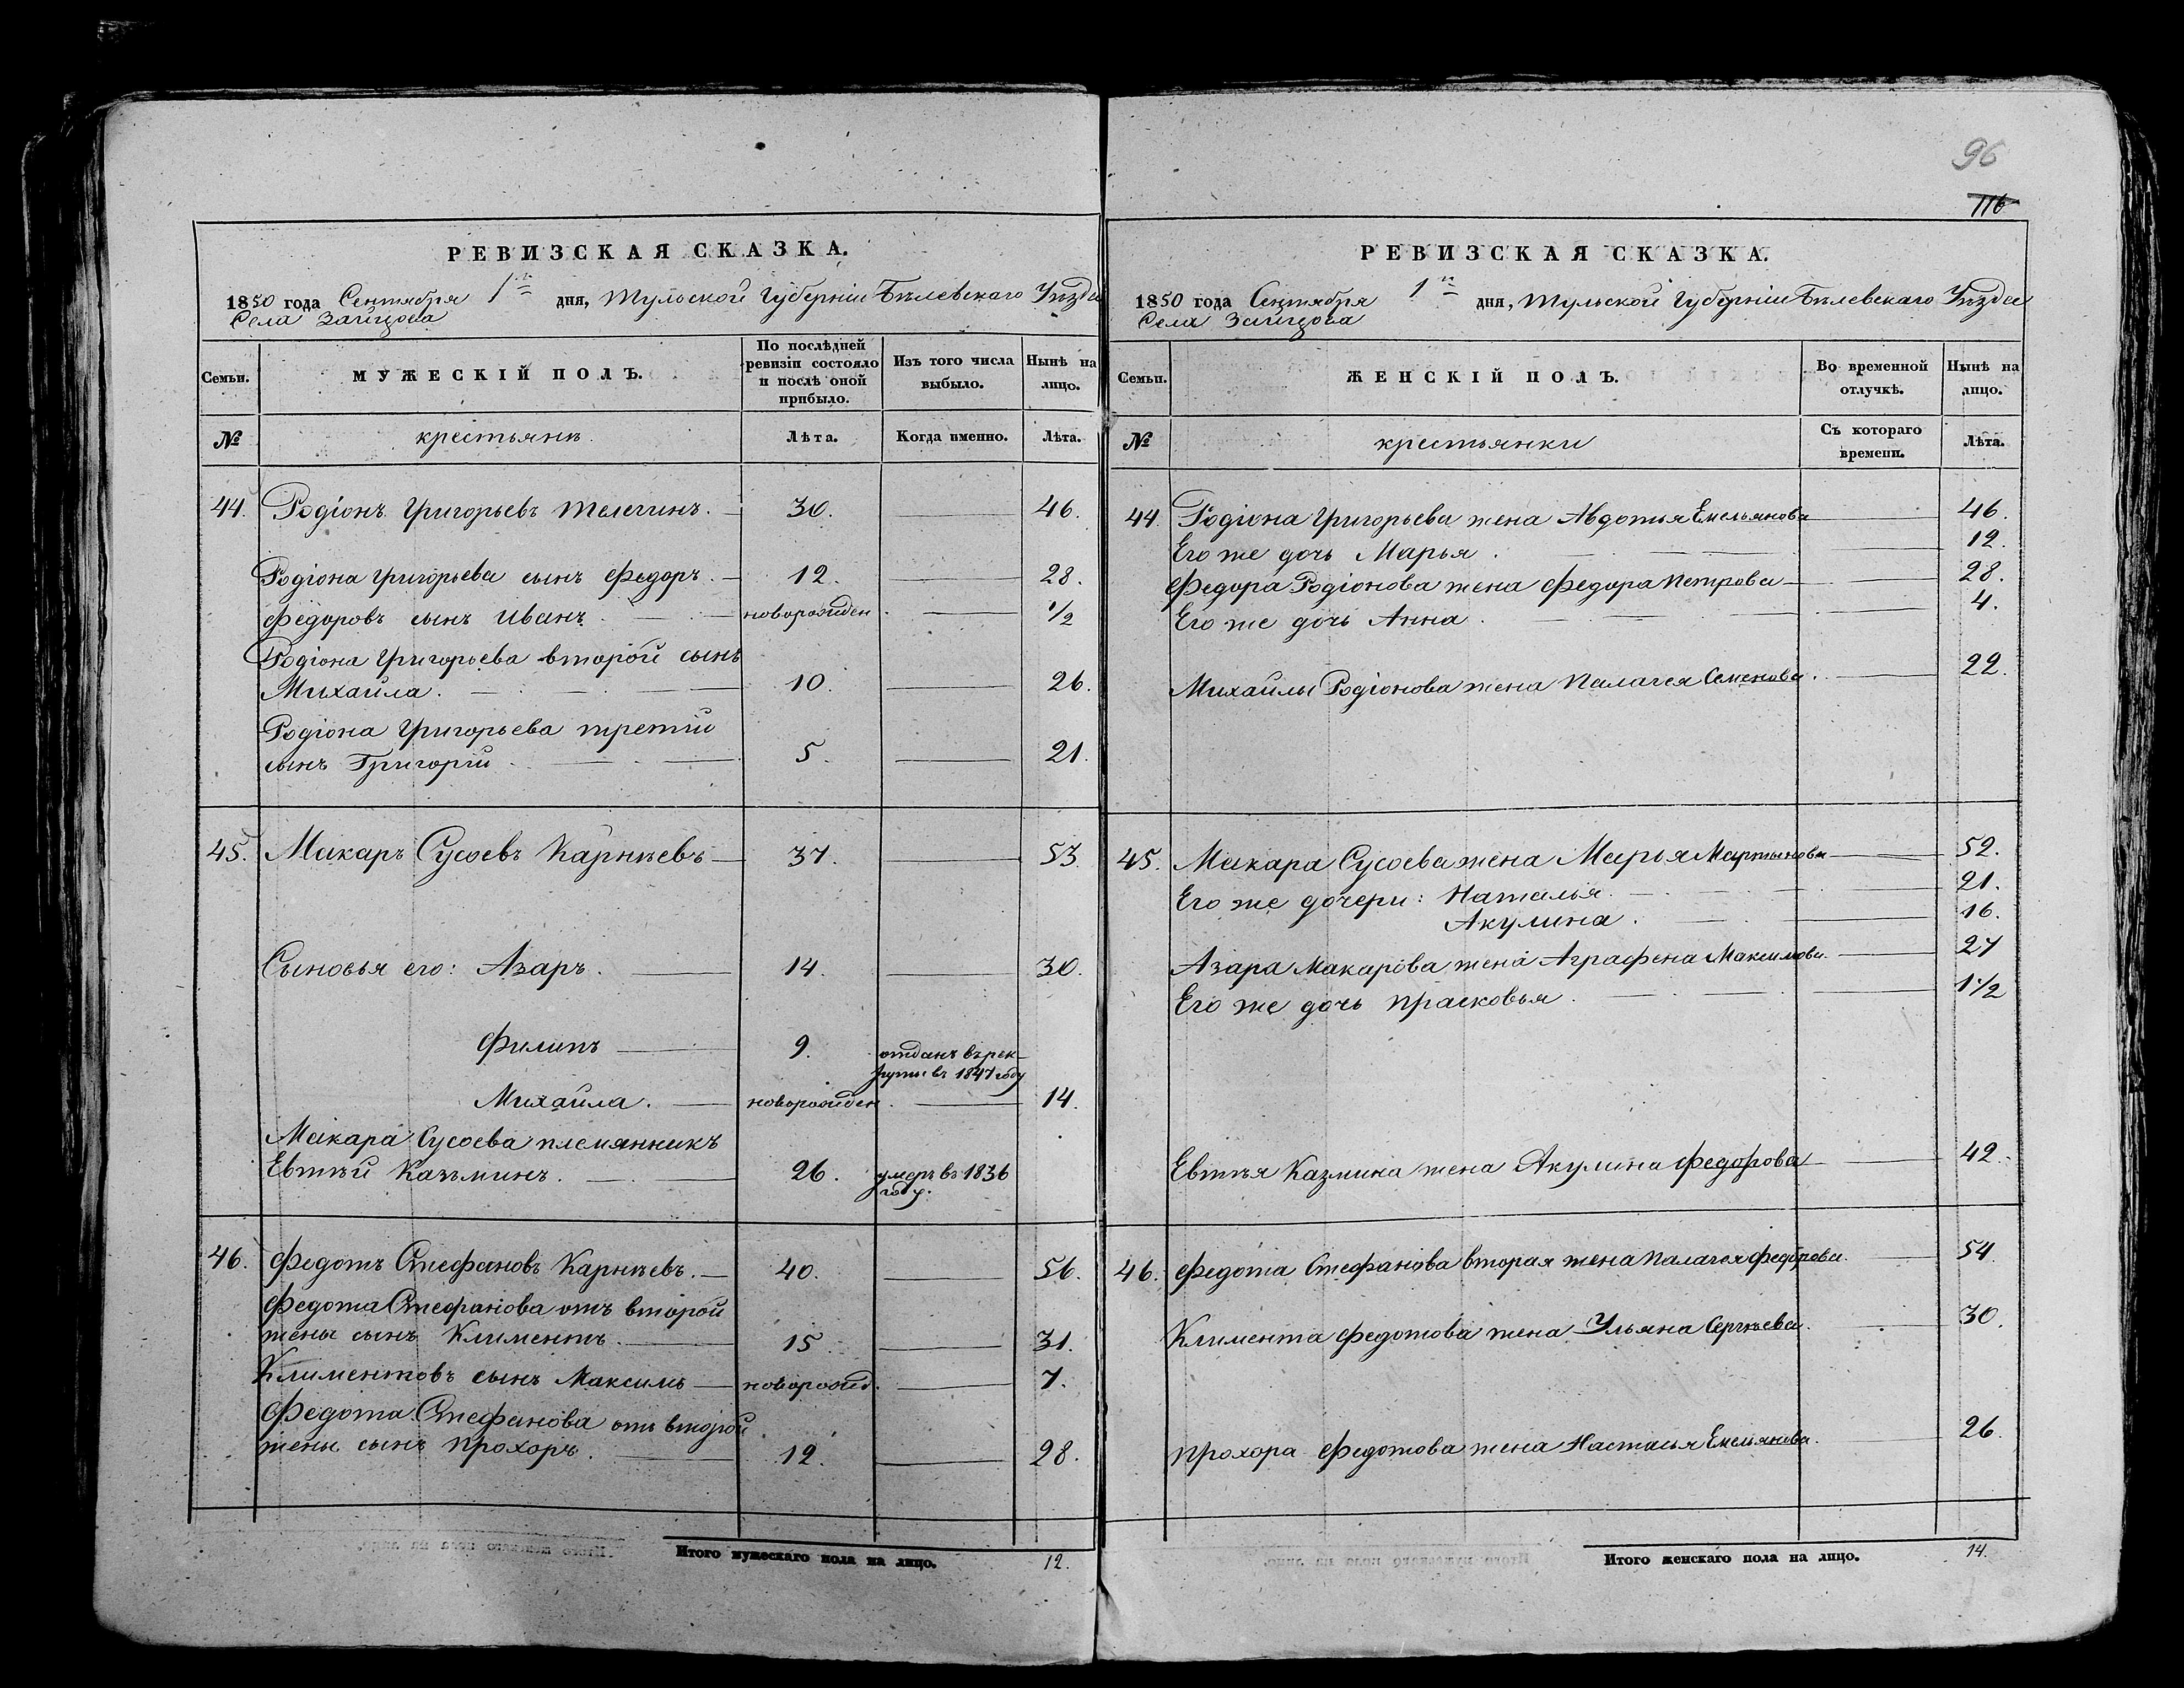 РЕВИЗСКАЯ СКАЗКА.
1850 года Сентября 1го дня, Тульской Губерніи Бѣлевскаго Уѣзда
Села Зайцова
Семьи. МУЖЕСКІЙ ПОЛЪ. По послѣдней ревизіи состояло и послѣ оной прибыло. Изъ того числа выбыло. Нынѣ на лицо.
№ крестьянѣ. Лѣта. Когда именно. Лѣта.
44. Родіонъ Григорьевъ Телегинъ. 30. 46.
Родіона Григорьева сынъ Федоръ. 12. 28.
Федоровъ сынъ Иванъ. новорожден. 1/2
Родіона Григорьева второй сынъ
Михайла. 10. 26.
Родіона Григорьева третій
сынъ Григорій. 5. 21.
45. Макаръ Сусоевъ Карнѣевъ 37. 53.
Сыновья его: Азаръ. 14. 30.
Филипъ 9. отданъ въ рек-
руты въ 1847 году
Михайла. новорожден. 14.
Макара Сусоева племянникъ
Евтѣй Казьминъ. 26. умеръ въ 1836
году.
46. Федотъ Стефановъ Карнѣевъ. 40. 56.
Федота Стефанова отъ второй
жены сынъ Климентъ. 15. 31.
Климентовъ сынъ Максимъ новорожд. 7.
Федота Стефанова отъ второй
жены сынъ Прохоръ. 12. 28.
Итого мужескаго пола на лицо. 12.
96
116
РЕВИЗСКАЯ СКАЗКА.
1850 года Сентября 1го дня, Тульской Губерніи Бѣлевскаго Уѣзда
Села Зайцова
Семьи. ЖЕНСКІЙ ПОЛЪ. Во временной отлучкѣ. Нынѣ на лицо.
№ крестьянки Съ котораго времени. Лѣта.
44. Родіона Григорьева жена Авдотья Емельянова 46.
Его же дочь Марья. 12.
Федора Родіонова жена Федора Петрова 28.
Его же дочь Анна. 4.
Михайлы Родіонова жена Палагея Семенова. 22.
45. Макара Сусоева жена Марья Мартынова 52.
Его же дочери: Наталья. 21.
Акулина. 16.
Азара Макарова жена Аграфена Максимова. 27
Его же дочь Прасковья. 1 1/2
Евтѣя Казмина жена Акулина Федорова 42.
46. Федота Стефанова вторая жена Палагея Федорова. 54.
Климента Федотова жена Ульяна Сергѣева. 30.
Прохора Федотова жена Настасья Емельянова. 26.
Итого женскаго пола на лицо. 14.